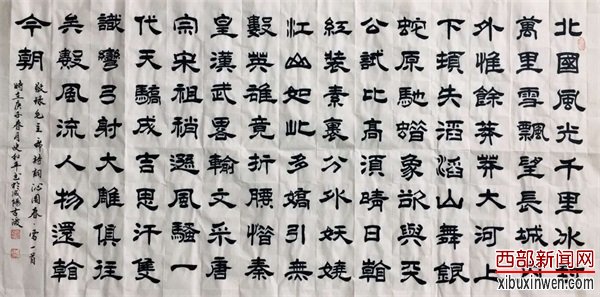 北國風光千里冰封
萬里雪飄望長城內
外惟餘莽莽大河上
下頓失滔滔山舞銀
蛇原馳蜡象欲與天
公試比高須晴日看
紅裝素裹分外妖嬈
江山如此多嬌引無
數英雄竟折腰惜秦
皇漢武畧輸文采唐
宗宋祖稍遜風騷一
代天驕成吉思汗隻
識彎弓射大雕俱往
矣數風流人物還看
今朝
敬錄毛主席詩詞沁園春·雪一首
時在庚子春月史和平
西部新闻网
xibuxinwen.com